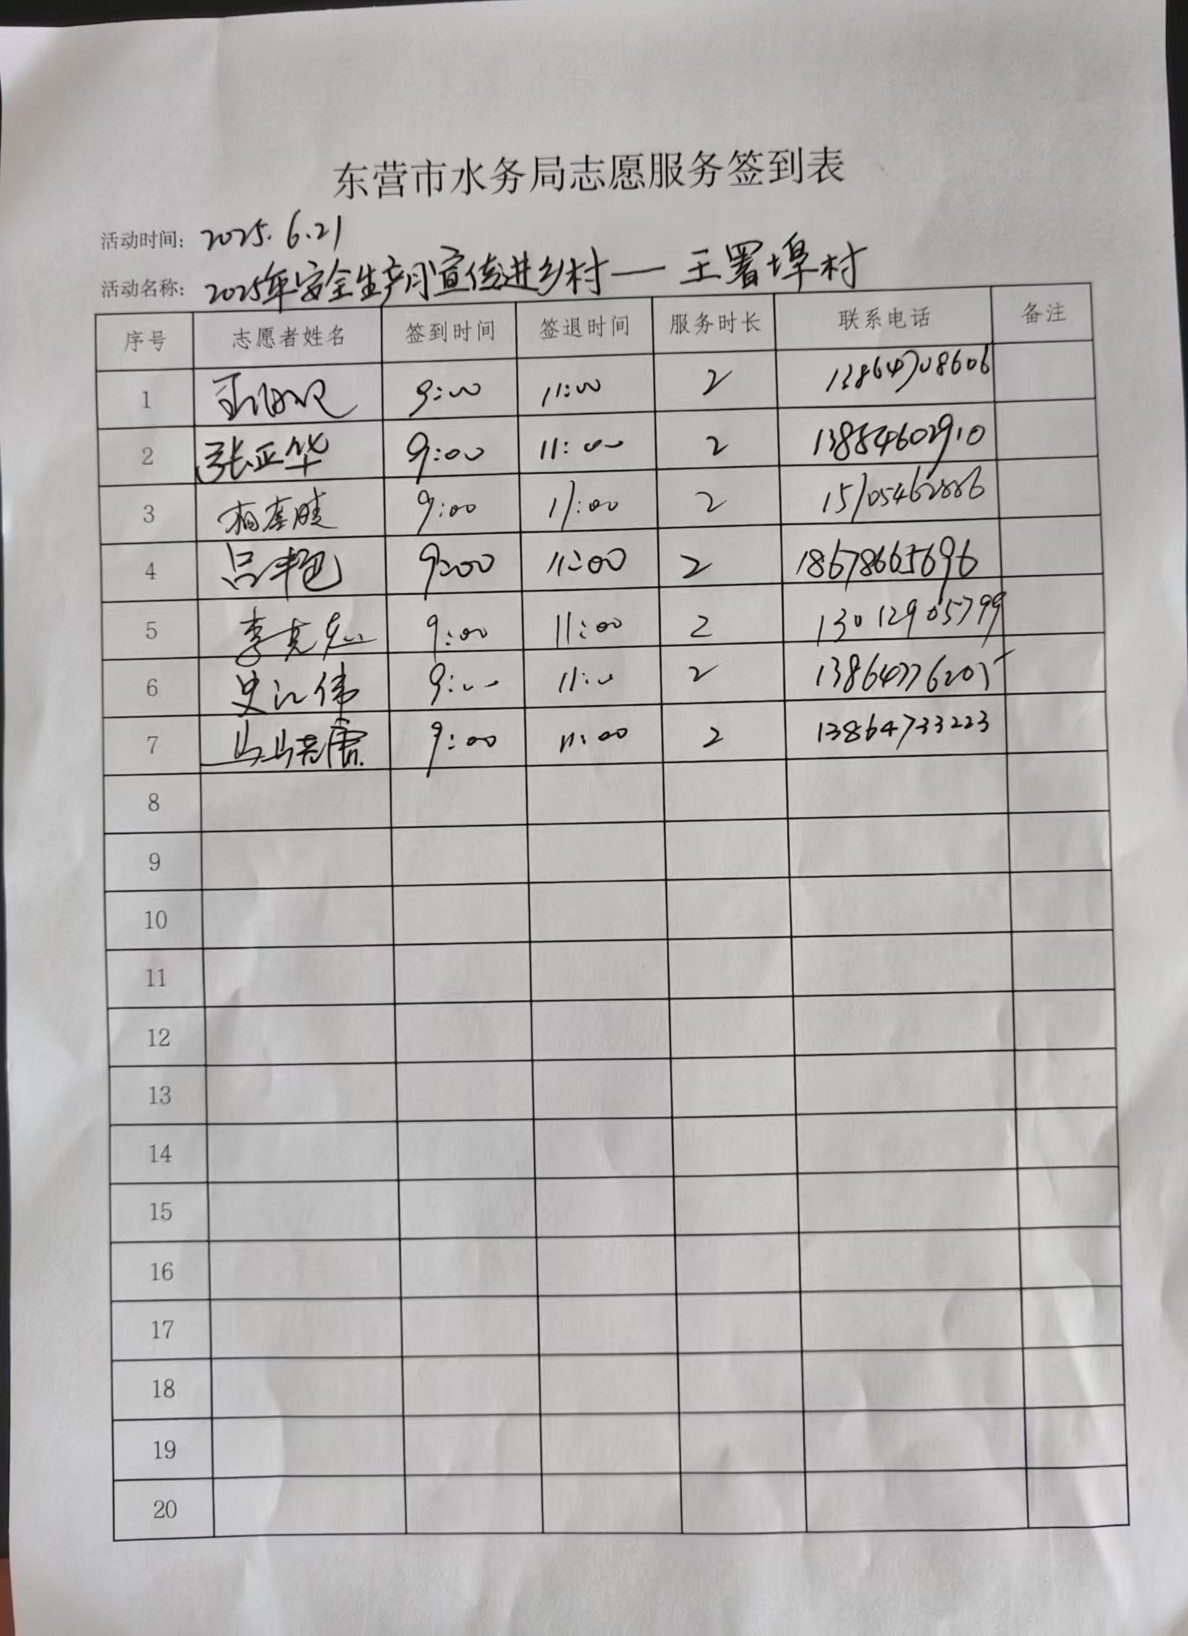 东营市水务局志愿服务签到表
活动时间: 2025.6.21
活动名称: 2025年安全生产月宣传进乡村——王署埠村
序号 志愿者姓名 签到时间 签退时间 服务时长 联系电话 备注
1 9:00 11:00 2 13864708606
2 张亚华 9:00 11:00 2 13854602910
3 9:00 11:00 2 15105462886
4 吕丰艳 9:00 11:00 2 18678665696
5 9:00 11:00 2 13012905799
6 史江伟 9:00 11:00 2 13864776205
7 9:00 11:00 2 13864733223
8
9
10
11
12
13
14
15
16
17
18
19
20